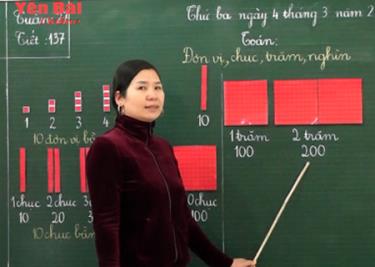 Yên Bái
Tuần
Tiết : 137
Thứ ba ngày 4 tháng 3 năm 2
Toán:
Đơn vị, chục, trăm, nghìn
1 2 3 4
10
10 đơn vị
1 trăm 2 trăm
100 200
1 chục 2 chục 3
10 20 3
0 chục
100
10 chục